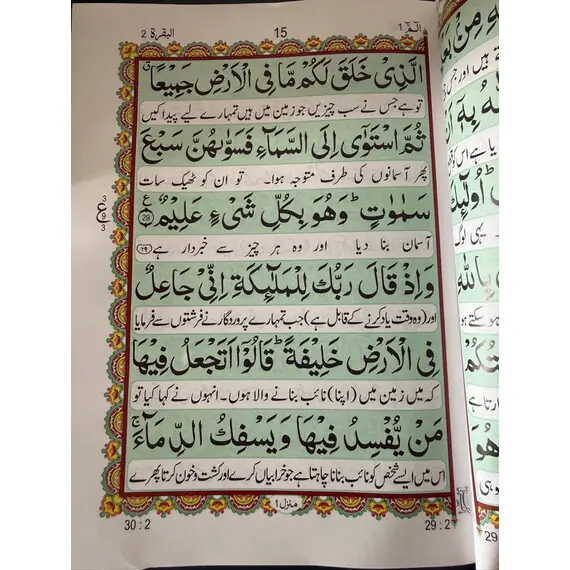 الٓمّٓ ١
15
البقرة ٢
الَّذِىْ خَلَقَ لَكُمْ مَّا فِى الْاَرْضِ جَمِيْعًا ق
تو ہے جس نے سب چیزیں جو زمین میں ہیں تمہارے لیے پیدا کیں
ثُمَّ اسْتَوٰٓى اِلَى السَّمَآءِ فَسَوّٰىهُنَّ سَبْعَ
پھر آسمانوں کی طرف متوجہ ہوا۔ تو ان کو ٹھیک سات
سَمٰوٰتٍ ؕ وَهُوَ بِكُلِّ شَىْءٍ عَلِيْمٌ ع 29
آسمان بنا دیا اور وہ ہر چیز سے خبردار ہے ٢٩
3 ع 9 3
وَاِذْ قَالَ رَبُّكَ لِلْمَلٰٓئِكَةِ اِنِّىْ جَاعِلٌ
اور (وہ وقت یاد کرنے کے قابل ہے) جب تمہارے پروردگار نے فرشتوں سے فرمایا
فِى الْاَرْضِ خَلِيْفَةً ؕ قَالُوْۤا اَتَجْعَلُ فِيْهَا
کہ میں زمین میں (اپنا) نائب بنانے والا ہوں۔ انہوں نے کہا کیا تو
مَنْ يُّفْسِدُ فِيْهَا وَيَسْفِكُ الدِّمَآءَ ۚ
اس میں ایسے شخص کو نائب بنانا چاہتا ہے جو خرابیاں کرے اور کشت و خون کرتا پھرے
منزل ١
29 : 2
30 : 2